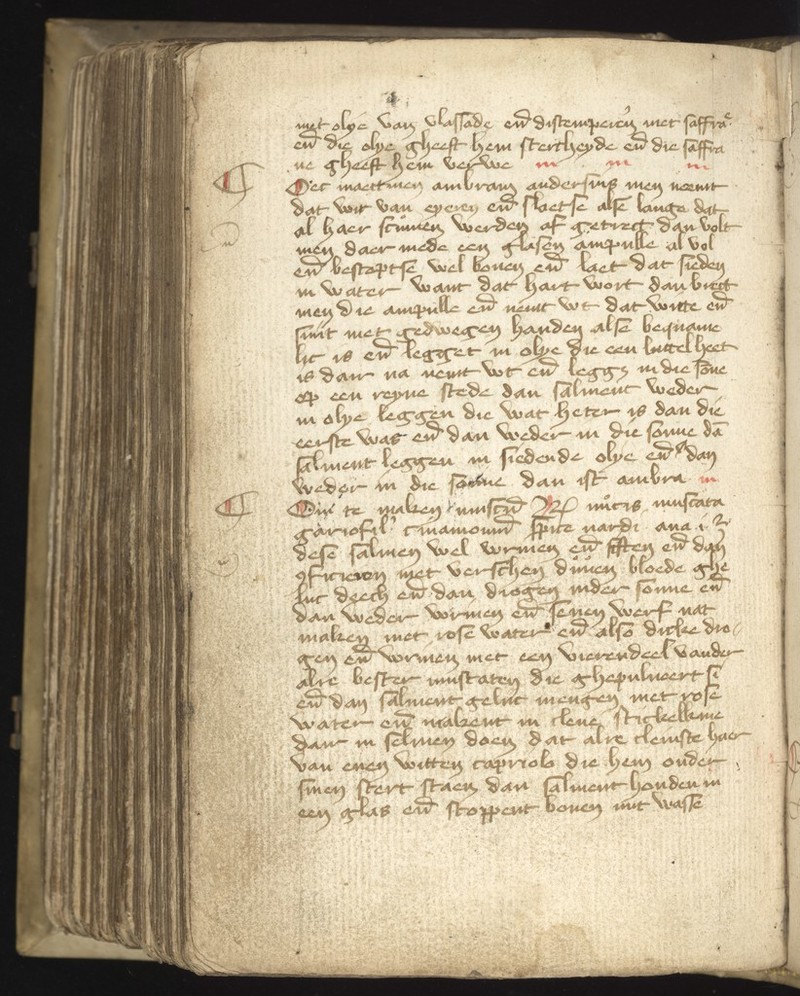 met olye van vlassade eñ distemperen met saffra
eñ die olye gheeft hem stercheyde eñ die saffra
ne gheeft hem verwe
Oec maectmen ambram andersins men neemt
dat wit van eyeren eñ slaetse alse lange dat
al haer scumen werden af getrect dan volt
men daer mede een glasen ampulle al vol
eñ bestoptse wel boven eñ laet dat sieden
in water want dat hart wort dan breect
men die ampulle eñ nemt wt dat witte eñ
snit met gedwegen handen alse bequame
lic is eñ legget in olye die een luttel heet
is dair na nemt wt eñ legg in die sone
op een reyne stede dan salment weder
in olye leggen die wat heter is dan die
eerste was eñ dan weder in die sonne dā
salment leggen in siedende olye eñ dan
weder in die sonne dan ist ambra
Om te maken muscū R nucis muscata
gariofil cinamomū spice nardi ana i
dese salmen wel wrinen eñ siften eñ dan
9ficieren met verschen duven bloede ghe
lijc deech eñ dan drogen inder sonne eñ
dan weder wrinen eñ seven werf nat
maken met rose water eñ also dicke dro
gen eñ wrinen met een vierendeel vander
alre bester muscaten die ghepulveert si
eñ dan salment gelijc mengen met rose
water eñ makent in clene stickelkine
dair in selmen doen dat alre cleinste haer
van enen witten capriolo die hem onder
sinen stert staen dan salment houden in
een glas eñ stoppent boven mit wasse